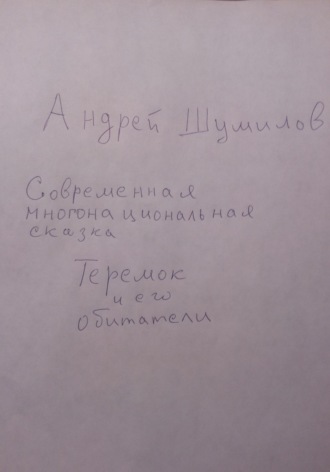 Андрей Шумилов
Современная
многонациональная
сказка
Теремок
и его
обитатели